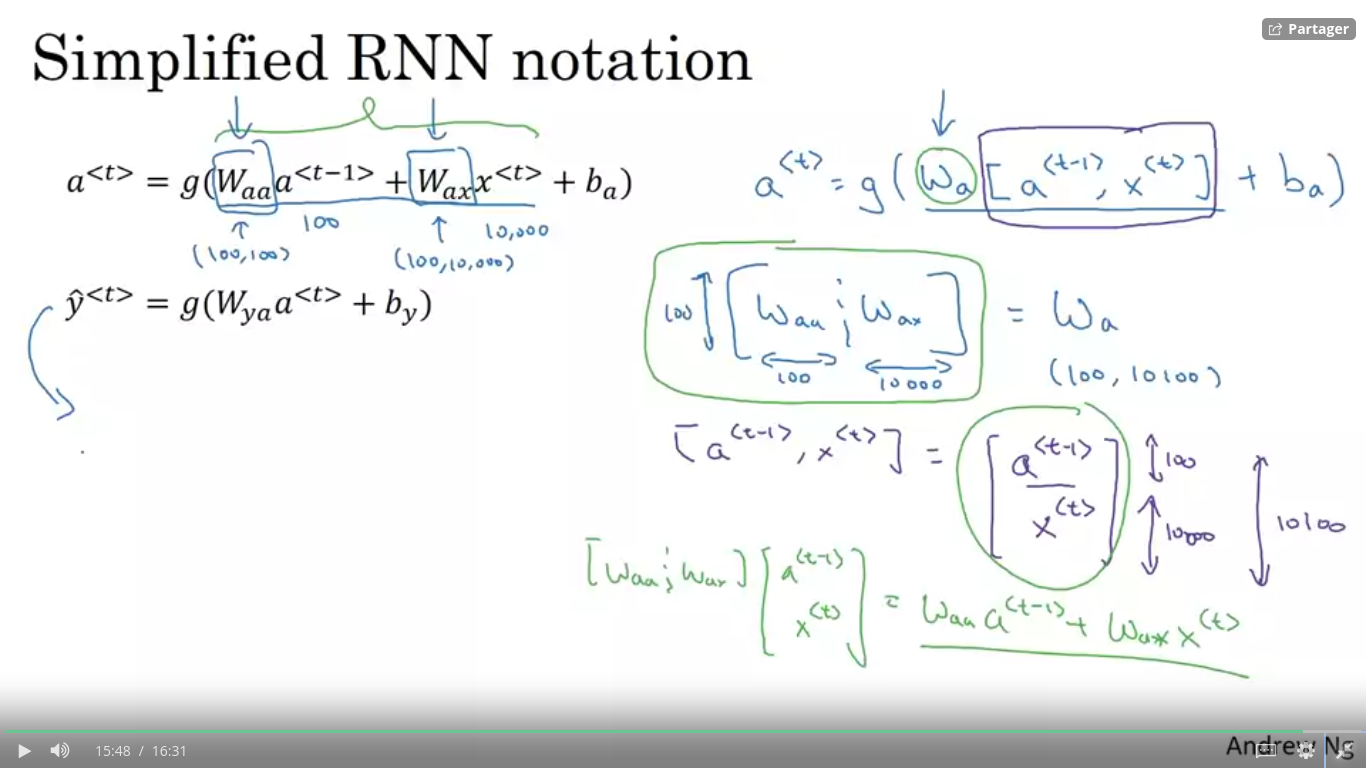 Partager
Simplified RNN notation
a<t> = g(Waa a<t-1> + Wax x<t> + ba)
100 10,000
(100,100) (100,10,000)
ŷ<t> = g(Wya a<t> + by)
a<t> = g(Wa [a<t-1>, x<t>] + ba)
100 [Waa ¦ Wax] = Wa
100 10000 (100, 10100)
[a<t-1>, x<t>] = [a<t-1> 100
x<t>] 10000 10100
[Waa ¦ Wax] [a<t-1>
x<t>] = Waa a<t-1> + Wax x<t>
15:48 / 16:31
Andrew Ng